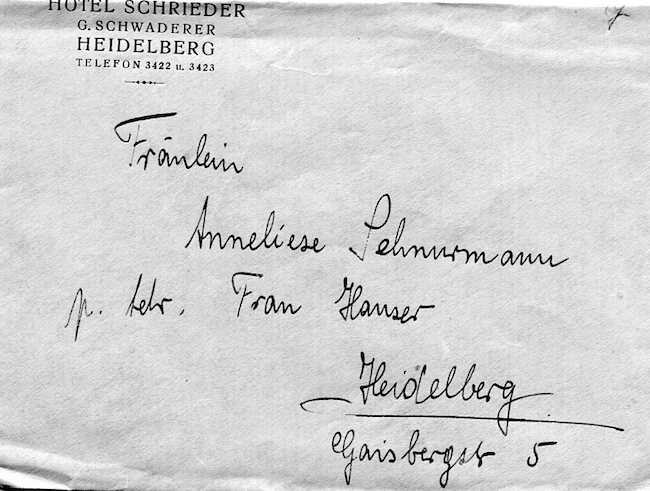 HOTEL SCHRIEDER
G. SCHWADERER
HEIDELBERG
TELEFON 3422 u. 3423
Fräulein
Anneliese Schnurmann
p. Adr. Frau Hauser
Heidelberg
Gaisbergstr 5